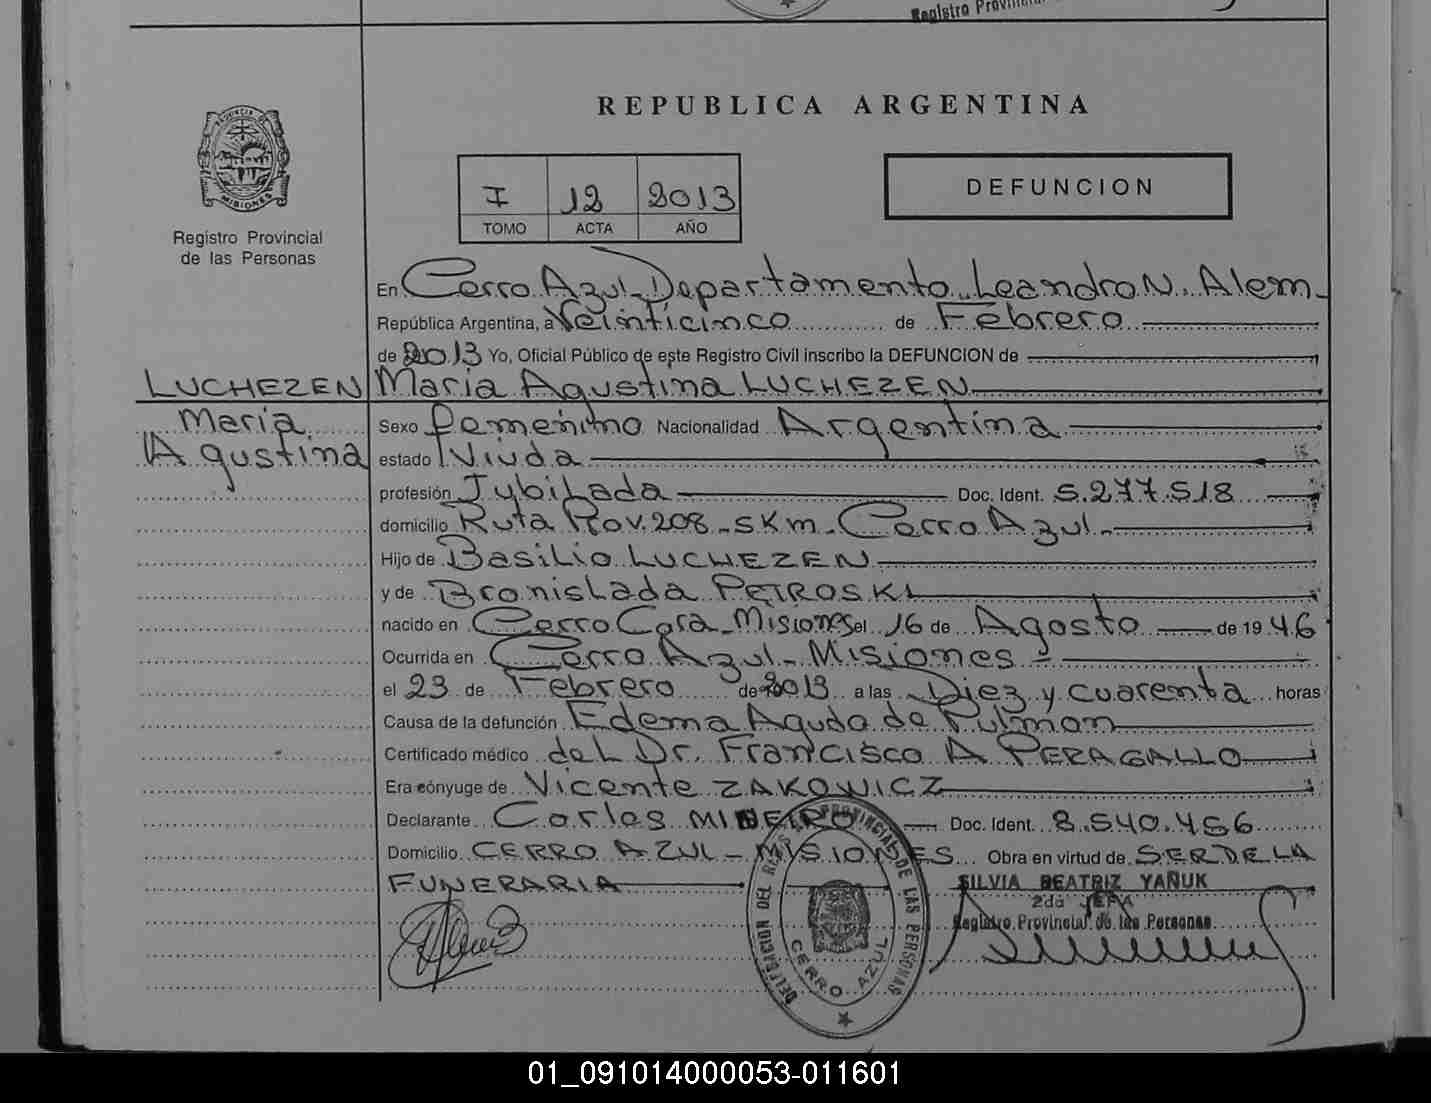 Registro Provincial
REPUBLICA ARGENTINA
PROVINCIA DE
MISIONES
Registro Provincial
de las Personas
I 12 2013
TOMO ACTA AÑO
DEFUNCION
En Cerro Azul - Departamento Leandro N. Alem -
República Argentina, a Veinticinco de Febrero
de 2013 Yo, Oficial Público de este Registro Civil inscribo la DEFUNCION de
LUCHEZEN Maria Agustina LUCHEZEN
María
Agustina
Sexo femenino Nacionalidad Argentina
estado Viuda
profesión Jubilada Doc. Ident. 5.277.518
domicilio Ruta Prov. 208 - 5 Km - Cerro Azul -
Hijo de Basilio LUCHEZEN
y de Bronislada PETROSKI
nacido en Cerro Cora - Misiones el 16 de Agosto de 19 46
Ocurrida en Cerro Azul - Misiones -
el 23 de Febrero de 2013 a las Diez y cuarenta horas
Causa de la defunción Edema Agudo de Pulmon
Certificado médico del Dr. Francisco A PERAGALLO
Era cónyuge de Vicente ZAKOWICZ
Declarante Carlos MINEIRO Doc. Ident. 8.540.456
Domicilio CERRO AZUL - MISIONES Obra en virtud de SER DE LA
FUNERARIA
SILVIA BEATRIZ YAÑUK
2da JEFA
Registro Provincial de las Personas
DELEGACION DEL REGISTRO PROVINCIAL DE LAS PERSONAS
CERRO AZUL
01_091014000053-011601